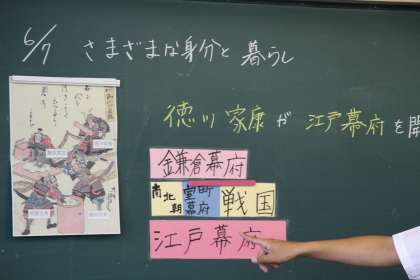 6/7 さまざまな身分と暮らし
徳川家康が江戸幕府を開
鎌倉幕府
南北朝 室町幕府 戦国
江戸幕府